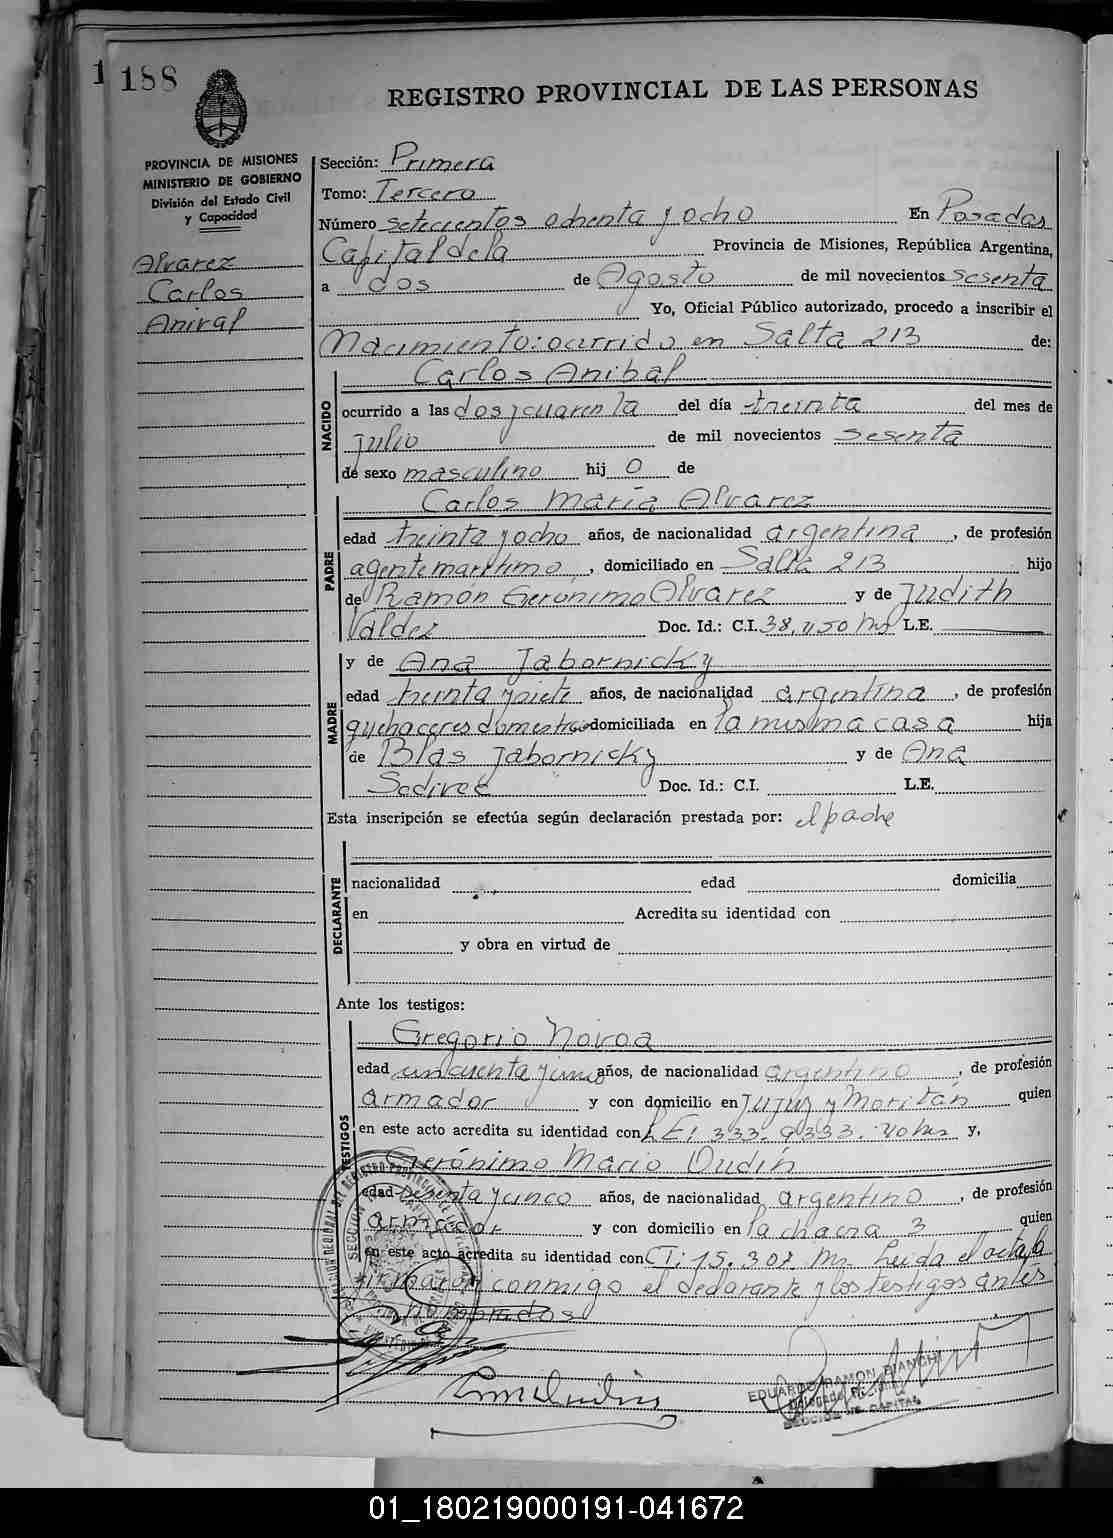 1 188
REGISTRO PROVINCIAL DE LAS PERSONAS
PROVINCIA DE MISIONES
MINISTERIO DE GOBIERNO
División del Estado Civil
y Capacidad
Alvarez
Carlos
Anival
Sección: Primera
Tomo: Tercero
Número setecientos ochenta y ocho En Posadas
Capital de la Provincia de Misiones, República Argentina,
a dos de Agosto de mil novecientos sesenta
Yo, Oficial Público autorizado, procedo a inscribir el
Nacimiento: ocurrido en Salta 213 de:
Carlos Anibal
NACIDO
ocurrido a las dos y cuarenta del día treinta del mes de
julio de mil novecientos sesenta
de sexo masculino hij o de
Carlos Maria Alvarez
PADRE
edad treinta y ocho años, de nacionalidad argentina, de profesión
agente maritimo, domiciliado en Salta 213 hijo
de Ramón Gerónimo Alvarez y de Judith
Valdez Doc. Id.: C.I. 38.450 Ms L.E.
y de Ana Jabornicky
MADRE
edad treinta y siete años, de nacionalidad argentina, de profesión
quehaceres domesticos domiciliada en la misma casa hija
de Blas Jabornicky y de Ana
Doc. Id.: C.I. L.E.
Esta inscripción se efectúa según declaración prestada por: el padre
DECLARANTE
nacionalidad edad domicilia
en Acredita su identidad con
y obra en virtud de
Ante los testigos:
TESTIGOS
Gregorio Novoa
edad años, de nacionalidad argentino, de profesión
armador y con domicilio en Jujuy y Moritán quien
en este acto acredita su identidad con LE: y,
Gerónimo Mario Oudín
edad y cinco años, de nacionalidad argentino, de profesión
armador y con domicilio en la chacra 3 quien
en este acto acredita su identidad con CI: 15.307 Mn. Leida el acta
firmaron conmigo el declarante y los testigos antes
nombrados
EDUARDO RAMON BIANCHI
SECCION DE CAPITAL
01_180219000191-041672